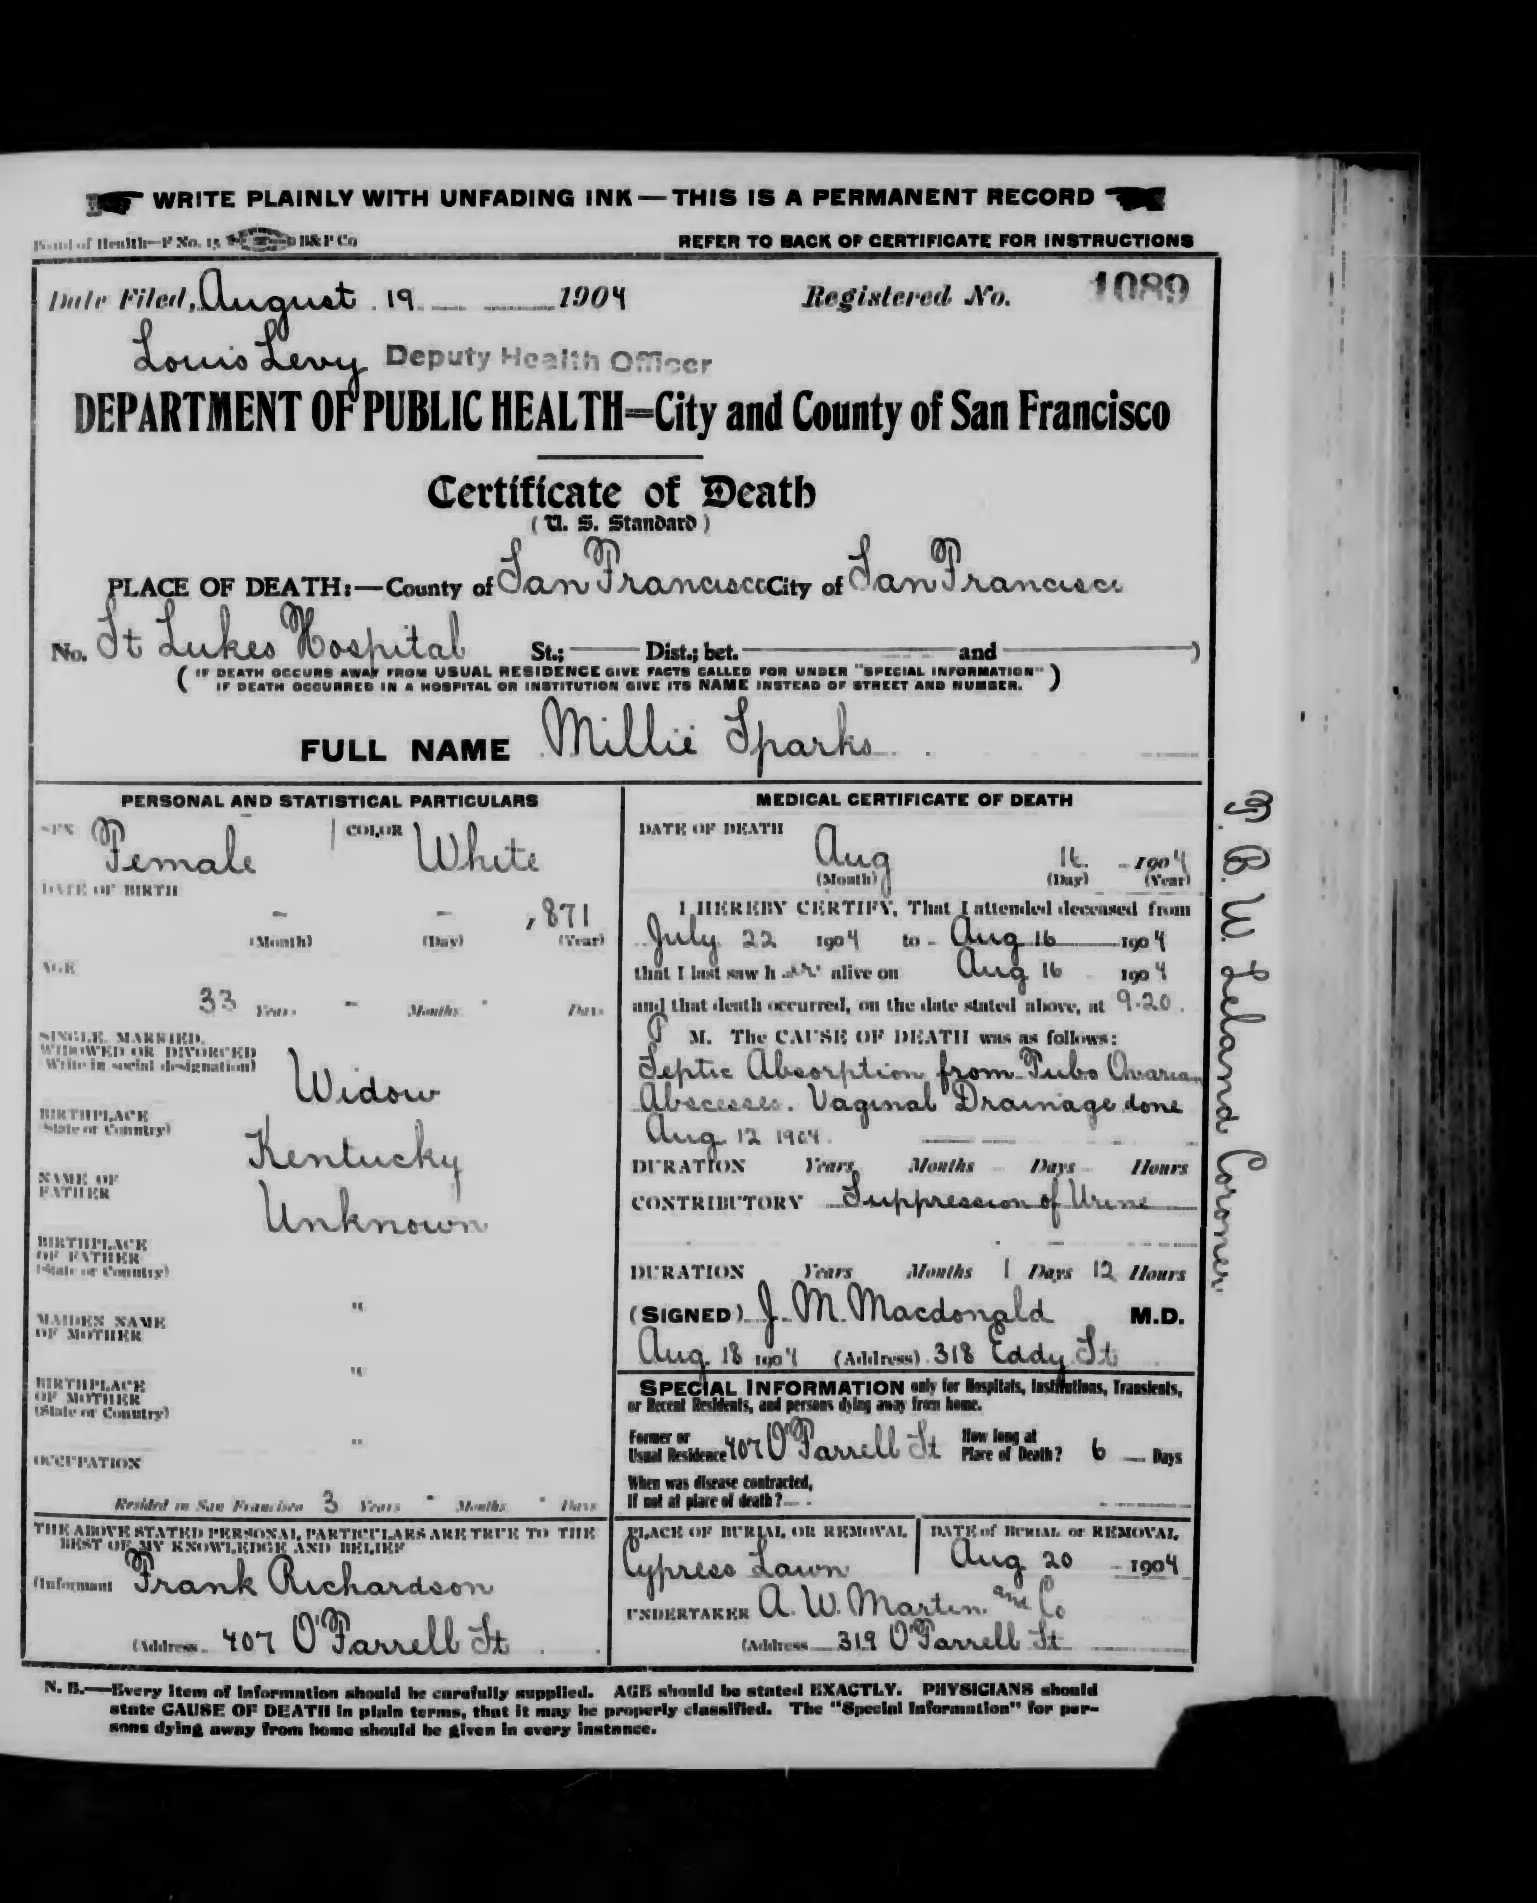 WRITE PLAINLY WITH UNFADING INK — THIS IS A PERMANENT RECORD
Board of Health—F No. 15 B&P Co
REFER TO BACK OF CERTIFICATE FOR INSTRUCTIONS
Date Filed, August 19 1904 Registered No. 1089
Louis Levy Deputy Health Officer
DEPARTMENT OF PUBLIC HEALTH=City and County of San Francisco
Certificate of Death
(U. S. Standard)
PLACE OF DEATH:—County of San Francisco City of San Francisco
No. St Lukes Hospital St.; Dist.; bet. and )
( IF DEATH OCCURS AWAY FROM USUAL RESIDENCE GIVE FACTS CALLED FOR UNDER "SPECIAL INFORMATION"
IF DEATH OCCURRED IN A HOSPITAL OR INSTITUTION GIVE ITS NAME INSTEAD OF STREET AND NUMBER. )
FULL NAME Millie Sparks
PERSONAL AND STATISTICAL PARTICULARS
SEX Female COLOR White
DATE OF BIRTH
- - 1871
(Month) (Day) (Year)
AGE
33 Years - Months - Days
SINGLE, MARRIED,
WIDOWED OR DIVORCED
(Write in social designation)
Widow
BIRTHPLACE
(State or Country)
Kentucky
NAME OF
FATHER
Unknown
BIRTHPLACE
OF FATHER
(State or Country)
"
MAIDEN NAME
OF MOTHER
"
BIRTHPLACE
OF MOTHER
(State or Country)
"
OCCUPATION
Resided in San Francisco 3 Years - Months - Days
THE ABOVE STATED PERSONAL PARTICULARS ARE TRUE TO THE
BEST OF MY KNOWLEDGE AND BELIEF
(Informant Frank Richardson
(Address 407 O'Farrell St
MEDICAL CERTIFICATE OF DEATH
DATE OF DEATH
Aug 16 1904
(Month) (Day) (Year)
I HEREBY CERTIFY, That I attended deceased from
July 22 1904 to Aug 16 1904
that I last saw her alive on Aug 16 1904
and that death occurred, on the date stated above, at 9.20
P M. The CAUSE OF DEATH was as follows:
Septic Absorption from Tubo Ovarian
Abscesses. Vaginal Drainage done
Aug 12 1904.
DURATION Years Months Days Hours
CONTRIBUTORY Suppression of Urine
DURATION Years Months 1 Days 12 Hours
(SIGNED) J. M. Macdonald M.D.
Aug. 18 1904 (Address) 318 Eddy St
SPECIAL INFORMATION only for Hospitals, Institutions, Transients,
or Recent Residents, and persons dying away from home.
Former or
Usual Residence 407 O'Farrell St How long at
Place of Death? 6 Days
When was disease contracted,
If not at place of death?
PLACE OF BURIAL OR REMOVAL
Cypress Lawn
DATE of BURIAL or REMOVAL
Aug 20 1904
UNDERTAKER A. W. Martin and Co
(Address 319 O'Farrell St
T. B. W. Leland Coroner
N. B.—Every item of information should be carefully supplied. AGE should be stated EXACTLY. PHYSICIANS should
state CAUSE OF DEATH in plain terms, that it may be properly classified. The "Special Information" for per-
sons dying away from home should be given in every instance.